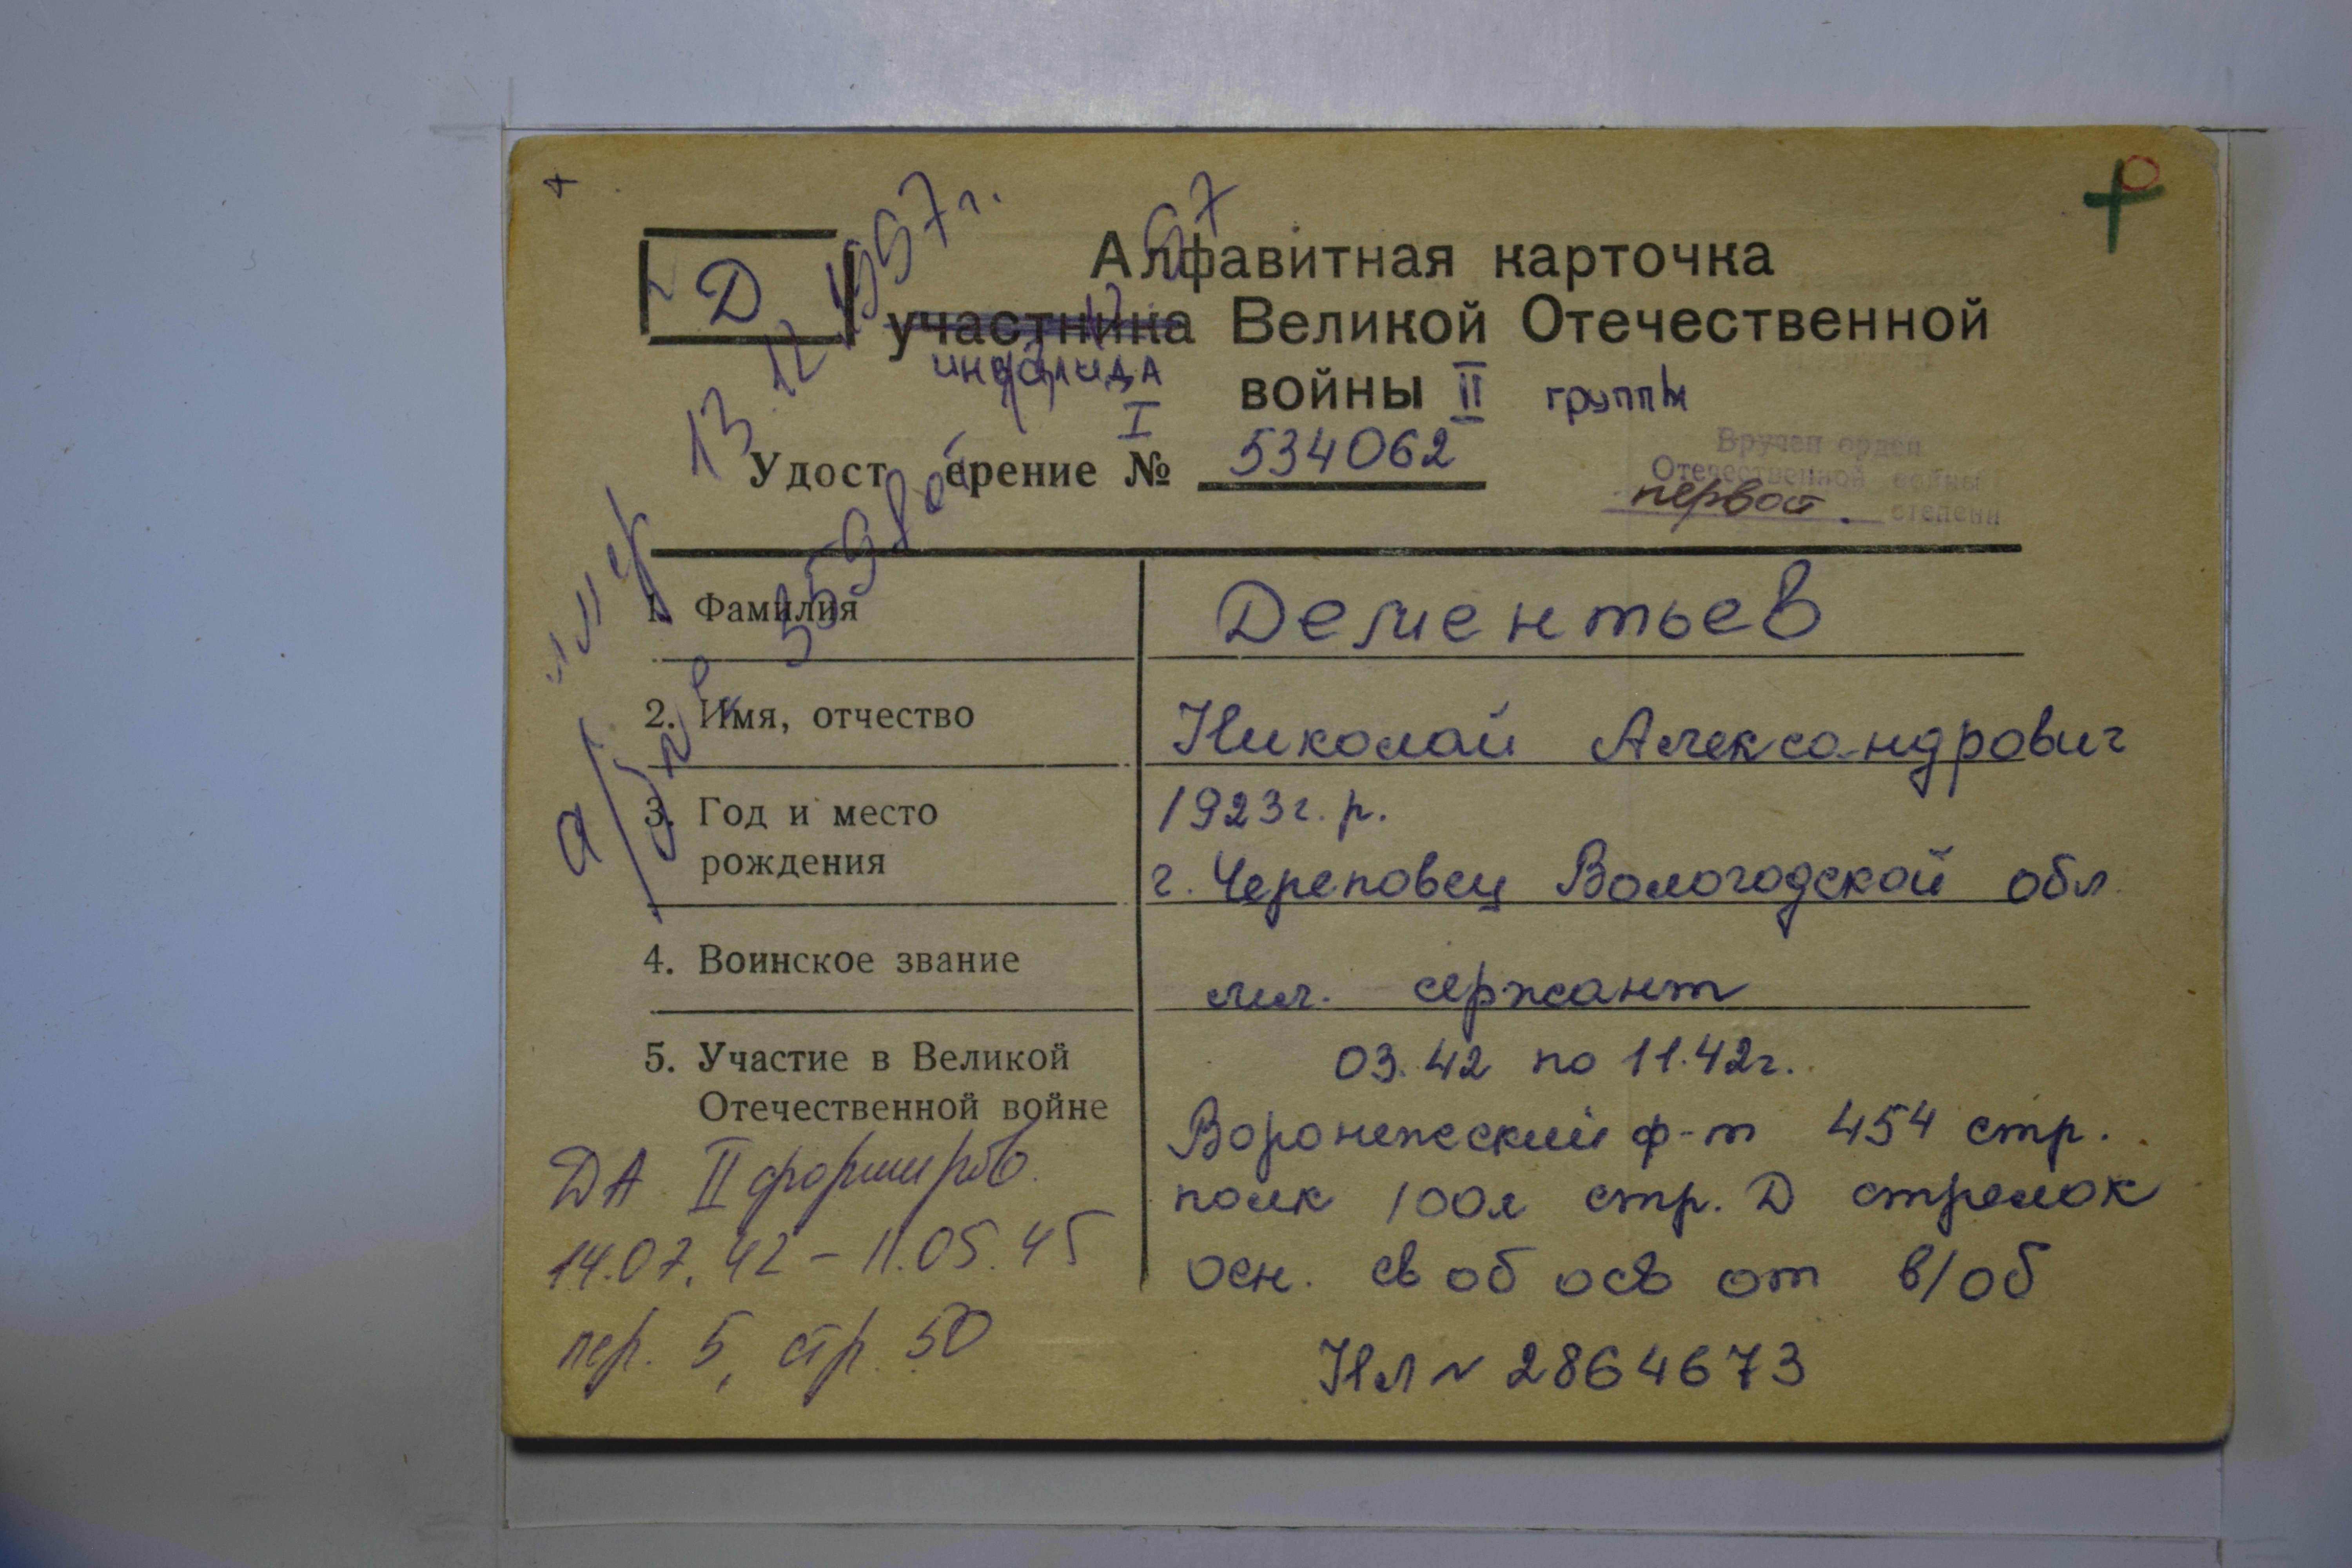 Д
Алфавитная карточка
участника Великой Отечественной
инвалида
войны II группы
I
Удостоверение № 534062
Вручен орден
Отечественной войны
первой степени
умер 13.12.1997г.
1. Фамилия Дементьев
2. Имя, отчество Николай Александрович
3. Год и место 1923г.р.
рождения г. Череповец Вологодской обл
4. Воинское звание мл. сержант
5. Участие в Великой 03.42 по 11.42г.
Отечественной войне Воронежский ф-т 454 стр.
полк 100я стр. Д стрелок
осн. своб осв от в/об
НЛ № 2864673
ДА II формиров.
14.07.42 - 11.05.45
пер. 5, стр. 50